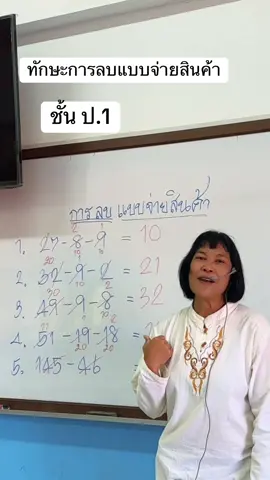 ทักษะการลบแบบจ่ายสินค้า
ชั้น ป.1
การ ลบ แบบจ่ายสินค้า
1. 27-8-9 = 10
2. 32-9-2 = 21
3. 49-9-8 = 32
4. 51-19-18
5. 145-46